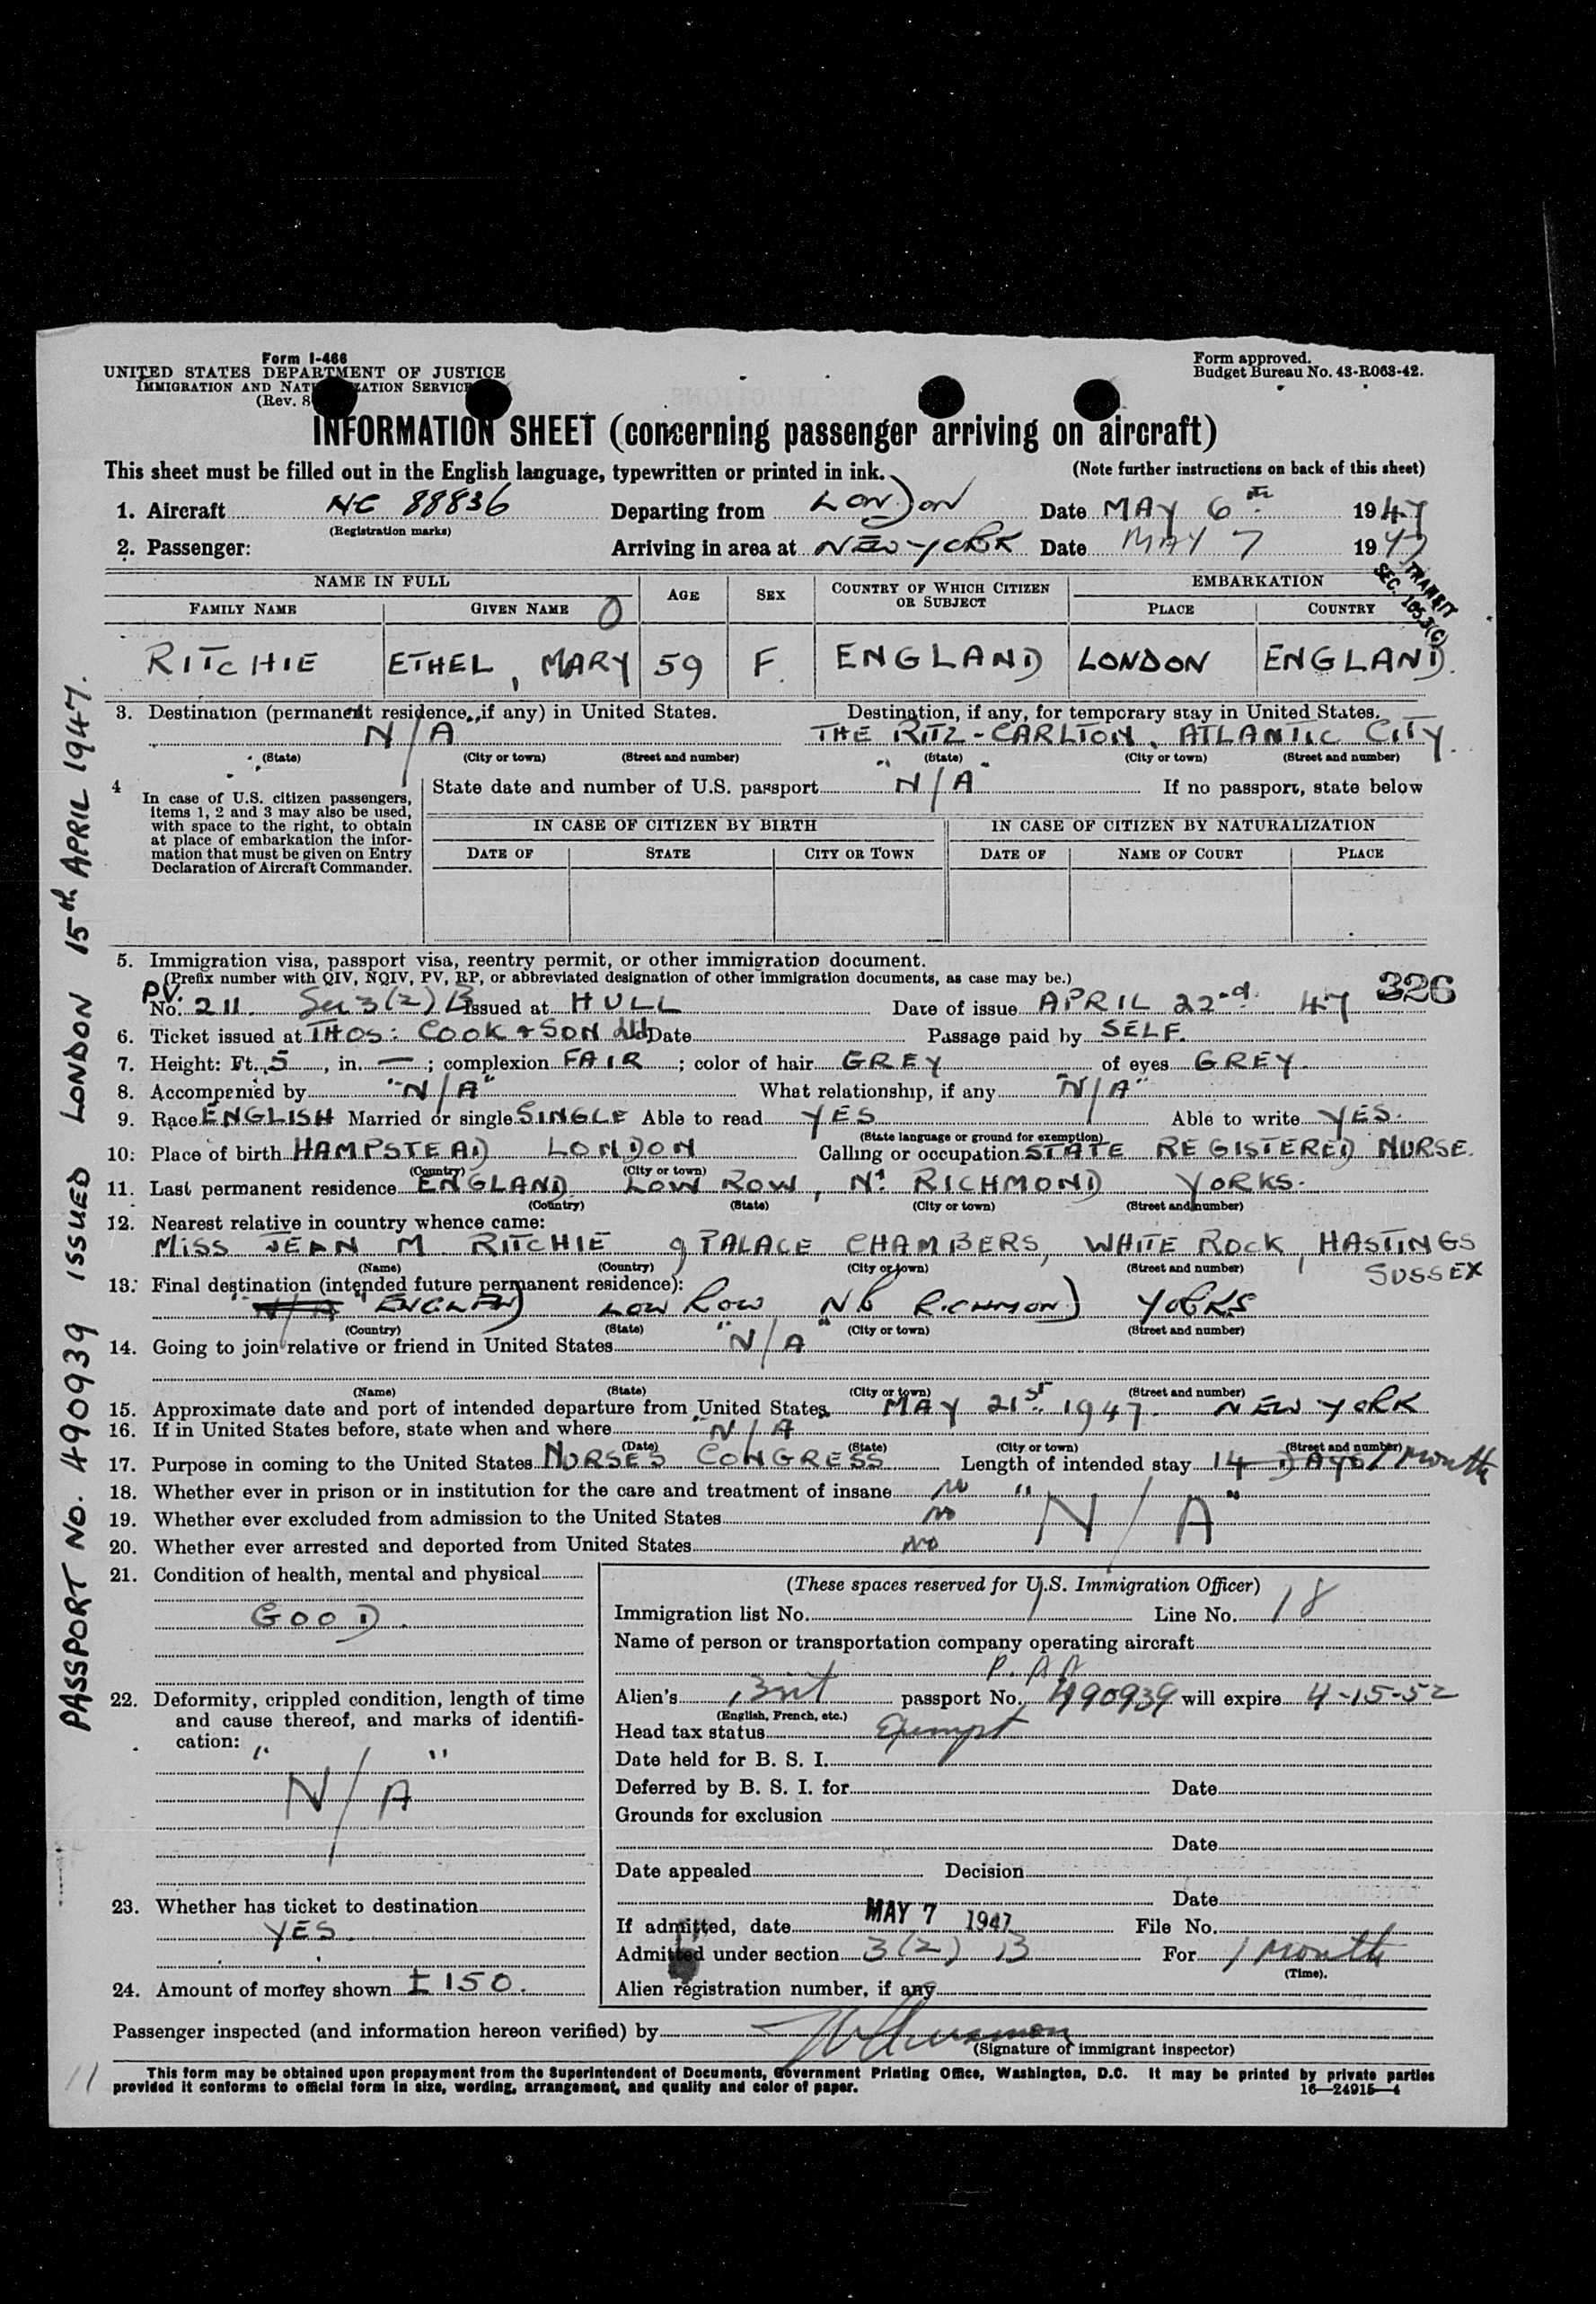 Form I-466
UNITED STATES DEPARTMENT OF JUSTICE
IMMIGRATION AND NATURALIZATION SERVICE
(Rev. 8
Form approved.
Budget Bureau No. 43-R063-42.
INFORMATION SHEET (concerning passenger arriving on aircraft)
This sheet must be filled out in the English language, typewritten or printed in ink.
(Note further instructions on back of this sheet)
1. Aircraft NC 88836 Departing from LONDON Date MAY 6TH 1947
(Registration marks)
2. Passenger: Arriving in area at NEW YORK Date MAY 7 1947
TRANSIT
SEC. 165.3(C)
NAME IN FULL AGE SEX COUNTRY OF WHICH CITIZEN OR SUBJECT EMBARKATION
FAMILY NAME GIVEN NAME 0 PLACE COUNTRY
RITCHIE ETHEL, MARY 59 F. ENGLAND LONDON ENGLAND.
3. Destination (permanent residence, if any) in United States. Destination, if any, for temporary stay in United States.
N/A THE RITZ-CARLTON, ATLANTIC CITY.
(State) (City or town) (Street and number) (State) (City or town) (Street and number)
4 In case of U.S. citizen passengers, items 1, 2 and 3 may also be used, with space to the right, to obtain at place of embarkation the information that must be given on Entry Declaration of Aircraft Commander.
State date and number of U.S. passport "N/A" If no passport, state below
IN CASE OF CITIZEN BY BIRTH IN CASE OF CITIZEN BY NATURALIZATION
DATE OF STATE CITY OR TOWN DATE OF NAME OF COURT PLACE
5. Immigration visa, passport visa, reentry permit, or other immigration document.
(Prefix number with QIV, NQIV, PV, RP, or abbreviated designation of other immigration documents, as case may be.)
PV. No. 211. Sec 3(2) B Issued at HULL Date of issue APRIL 22nd. 47 326
6. Ticket issued at THOS: COOK & SON Ltd Date Passage paid by SELF.
7. Height: Ft. 5, in. —; complexion FAIR; color of hair GREY of eyes GREY.
8. Accompenied by "N/A" What relationship, if any "N/A"
9. Race ENGLISH Married or single SINGLE Able to read YES Able to write YES.
(State language or ground for exemption)
10: Place of birth HAMPSTEAD LONDON Calling or occupation STATE REGISTERED NURSE.
(Country) (City or town)
11. Last permanent residence ENGLAND LOW ROW, Nr RICHMOND YORKS.
(Country) (State) (City or town) (Street and number)
12. Nearest relative in country whence came:
MISS JEAN M RITCHIE 9 PALACE CHAMBERS, WHITE ROCK, HASTINGS
SUSSEX
(Name) (Country) (City or town) (Street and number)
13: Final destination (intended future permanent residence):
"N/A" ENGLAND LOW ROW NR RICHMOND YORKS
(Country) (State) (City or town) (Street and number)
14. Going to join relative or friend in United States "N/A"
(Name) (State) (City or town) (Street and number)
15. Approximate date and port of intended departure from United States MAY 21ST 1947. NEW YORK
16. If in United States before, state when and where "N/A
(Date) (State) (City or town) (Street and number)
17. Purpose in coming to the United States NURSES CONGRESS Length of intended stay 14 DAYS 1 month
18. Whether ever in prison or in institution for the care and treatment of insane no
19. Whether ever excluded from admission to the United States no "N/A"
20. Whether ever arrested and deported from United States no
21. Condition of health, mental and physical
GOOD.
22. Deformity, crippled condition, length of time and cause thereof, and marks of identification:
"N/A"
23. Whether has ticket to destination
YES.
24. Amount of money shown £150.
(These spaces reserved for U.S. Immigration Officer)
Immigration list No. 1 Line No. 18
Name of person or transportation company operating aircraft
P.AA
Alien's Brit passport No. 490939 will expire 4-15-52
(English, French, etc.)
Head tax status Exempt
Date held for B. S. I.
Deferred by B. S. I. for Date
Grounds for exclusion
Date
Date appealed Decision
Date
If admitted, date MAY 7 1947 File No.
Admitted under section 3(2) B For 1 month
(Time).
Alien registration number, if any
Passenger inspected (and information hereon verified) by
(Signature of immigrant inspector)
11
This form may be obtained upon prepayment from the Superintendent of Documents, Government Printing Office, Washington, D.C. It may be printed by private parties
provided it conforms to official form in size, wording, arrangement, and quality and color of paper. 16—24915-4
PASSPORT NO. 490939 ISSUED LONDON 15th APRIL 1947.